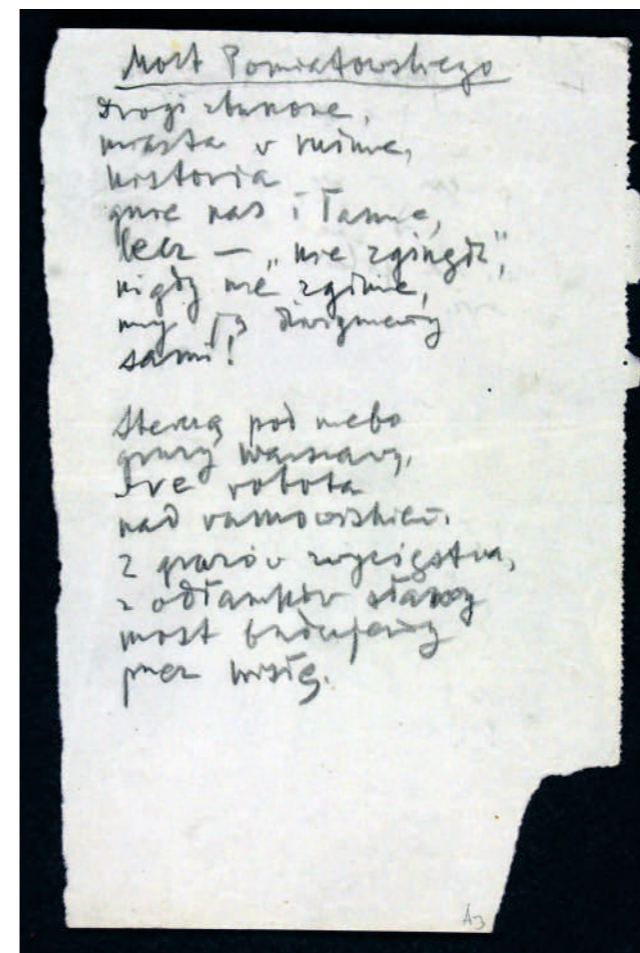 Most Poniatowskiego
Drogi zburzone,
miasta w ruinie,
historia
gnie nas i łamie,
lecz — „nie zginęła”,
nigdy nie zginie,
my ją dźwigniemy
sami!
Sterczą pod niebo
gruzy Warszawy,
wre robota
nad rumowiskiem.
z gruzów zwycięstwa,
z odłamków sławy
most budujemy
przez Wisłę.